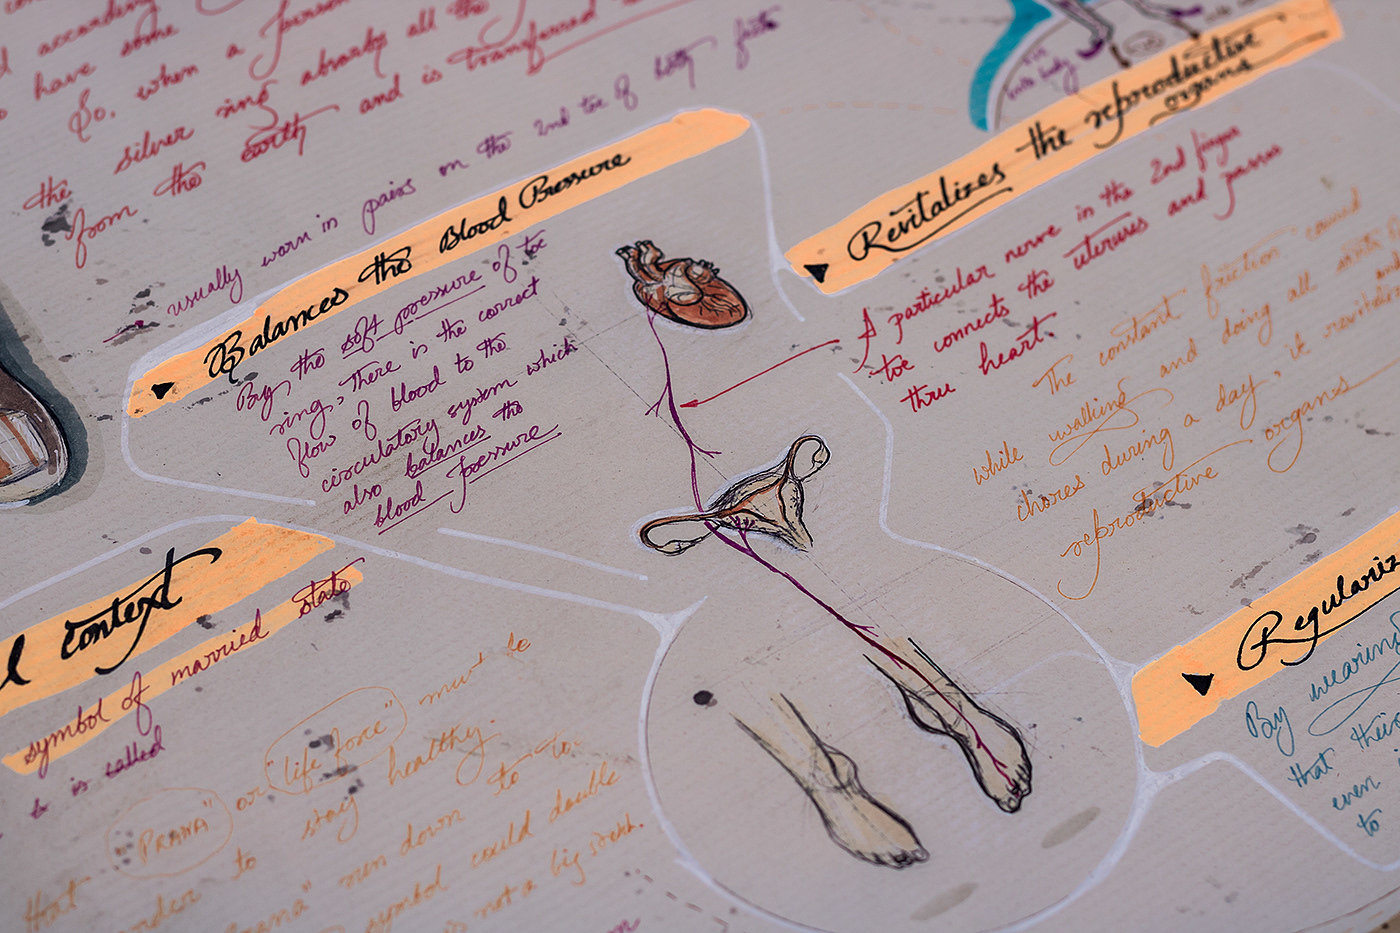 according
have some
So, when a person
the silver ring absorbs all the
from the earth and is transferred
usually worn in pairs on the 2nd toe of both feet
Balances the Blood Pressure
By the soft pressure of toe
ring, There is the correct
flow of blood to the
circulatory system which
also balances the
blood pressure
Revitalizes the reproductive
organs
A particular nerve in the 2nd finger
toe connects the uteruses and passes
thru heart.
The constant friction caused
while walking and doing all
chores during a day, it revitali
reproductive organs
l context
symbol of married state
is called
that "PRANA" or "life force" must be
order to stay healthy.
run down to
symbol could double
is not a big
Regulariz
By wearing
that their
even
to